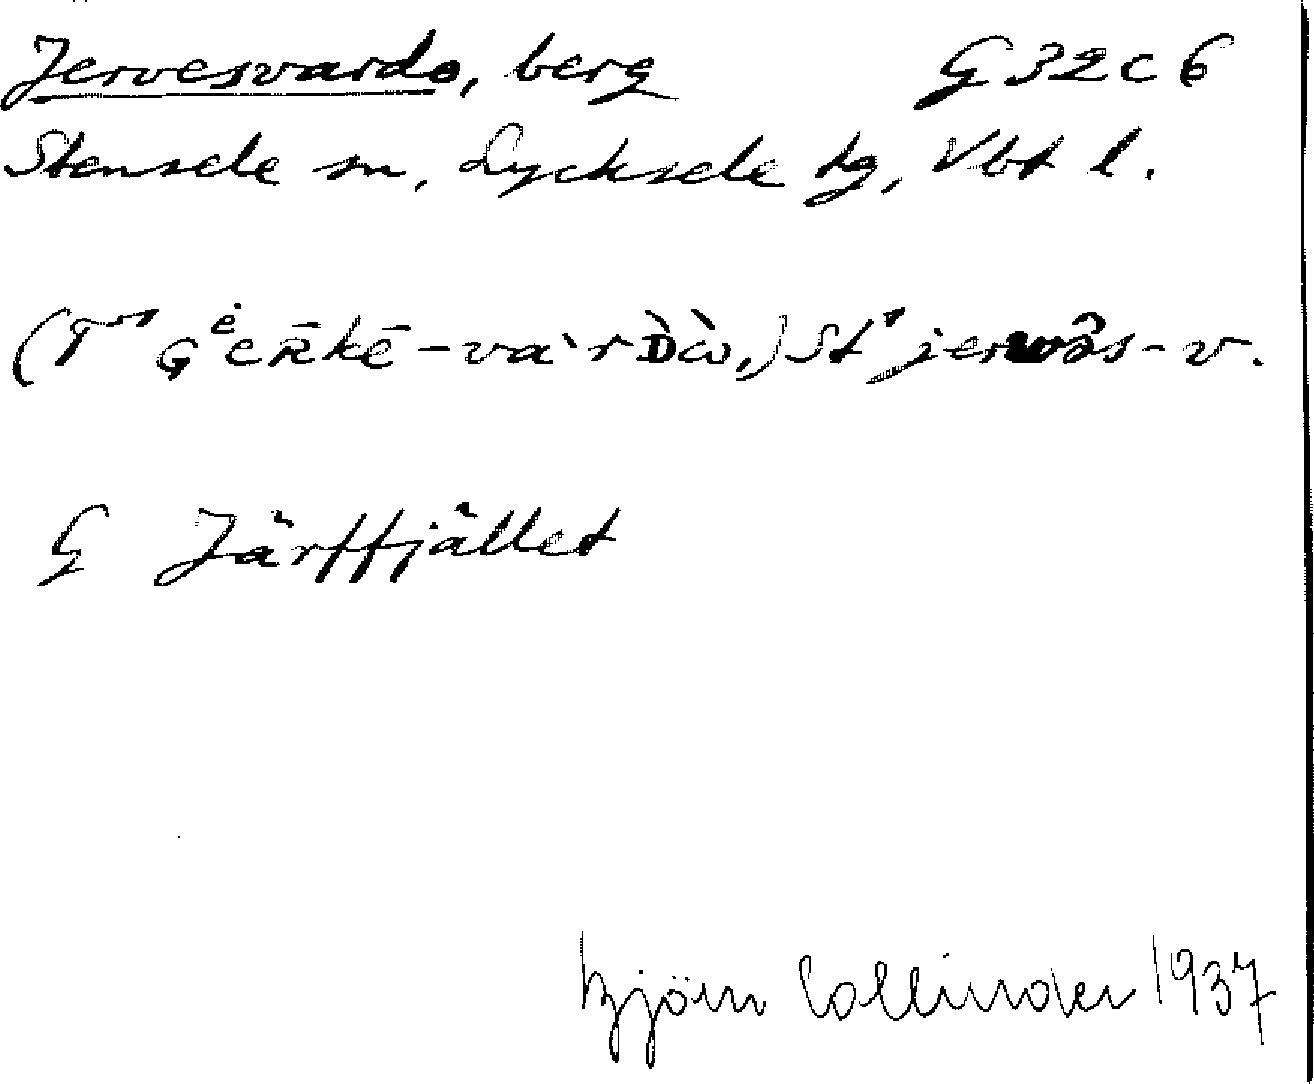 Jervesvardo, berg G 32 c 6
Stensele sn, Lycksele tg, Vbt l.
-va`rD̀ὼ,) St jervəs-v.
G Järffjället
Björn Collinder 1937